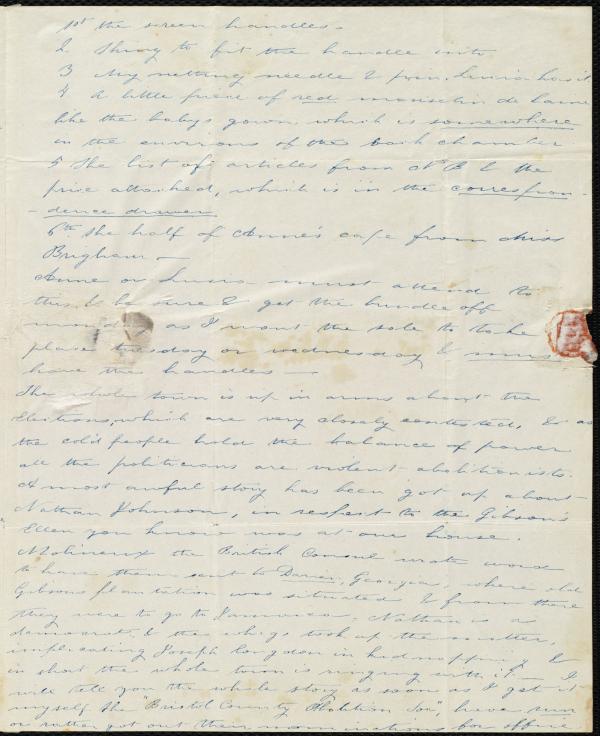 1st the screen handles.
2 Thing to fit the handle into
3 My netting needle & pin. Louisa has it
4 A little piece of red mouselin de laine
like the baby's gown, which is somewhere
in the environs of the back chamber
5 The list of articles from N B & the
price attached, which is in the correspon-
-dence drawer
6th The half of Anne's cape from Miss
Brigham —
Anne or Louisa must attend to
this & be sure & get the bundle off
monday as I want the sale to take
place tuesday or wednesday & must
have the handles —
The whole town is up in arms about the
elections, which are very closely contested, & as
the cold people hold the balance of power
all the politicians are violent abolitionists.
A most awful story has been got up about
Nathan Johnson, in respect to the Gibson's
Ellen you know was at our house.
Molineux the British Consul wrote word
to have them sent to Darien, Georgia, where old
Gibsons plantation was situated & from there
they were to go to Jamaica. Nathan is a
democrat, & the whigs took up the matter,
implicating Joseph Congdon in kidnapping &
in short the whole town is ringing with it — I
will tell you the whole story as soon as I get it
myself. The "Bristol County Abolition Soc", have run
or rather got out their nominations for office